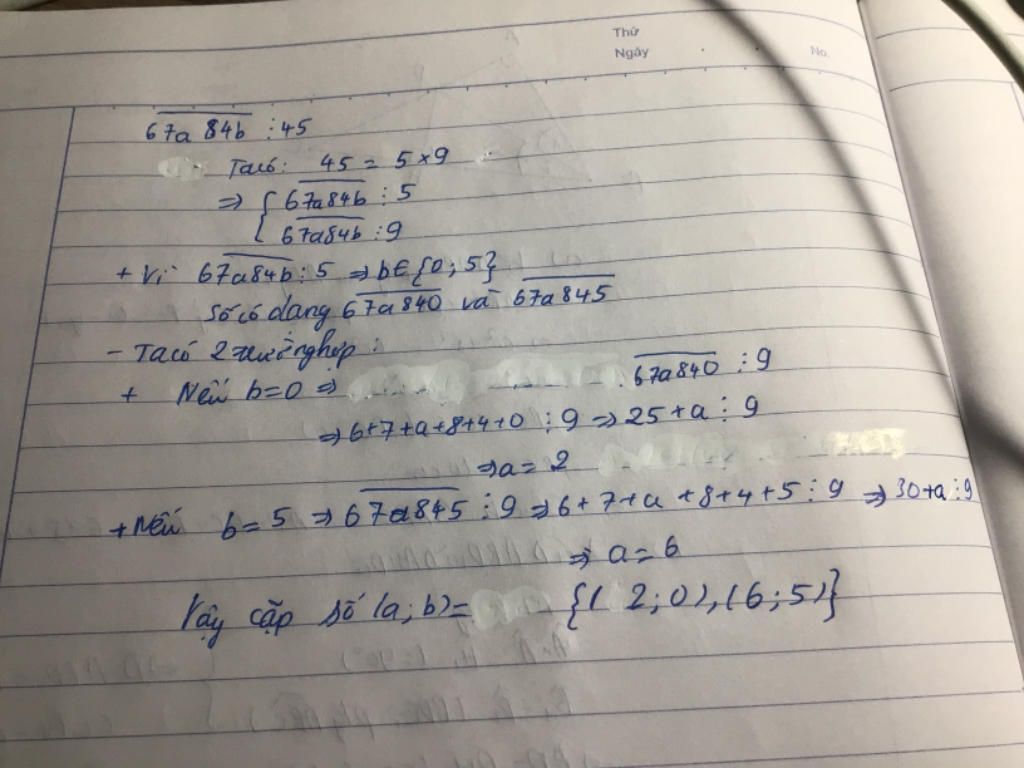 Thứ
Ngày
No.
67a 84b ⋮ 45
Ta có: 45 = 5 × 9
⇒ { 67a84b ⋮ 5
67a84b ⋮ 9
+ Vì 67a84b ⋮ 5 ⇒ b ∈ {0; 5}
Số có dạng 67a840 và 67a845
- Ta có 2 trường hợp:
+ Nếu b = 0 ⇒ 67a840 ⋮ 9
⇒ 6+7+a+8+4+0 ⋮ 9 ⇒ 25+a ⋮ 9
⇒ a = 2
+ Nếu b = 5 ⇒ 67a845 ⋮ 9 ⇒ 6+7+a+8+4+5 ⋮ 9 ⇒ 30+a ⋮ 9
⇒ a = 6
Vậy cặp số (a; b) = {( 2; 0), (6; 5)}